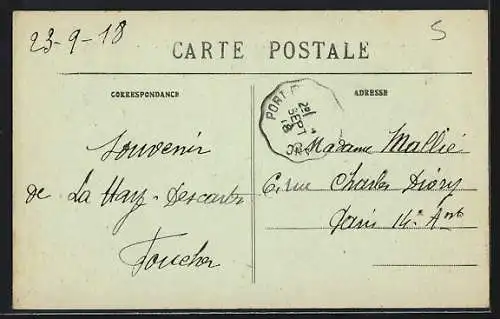 23-9-18
5
CARTE POSTALE
CORRESPONDANCE
ADRESSE
PORT
SEPT
18
Souvenir
de La Hay-Descartes
Foucher
Madame Mallié
6. rue Charles Divry
Paris 14e Arrt